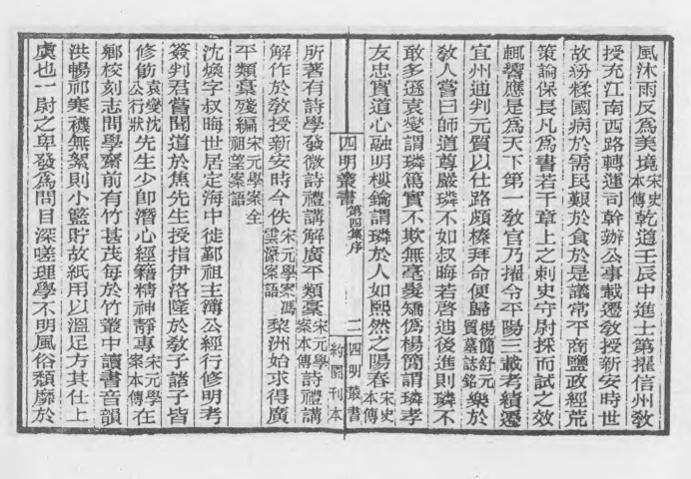 風沐雨反爲美境宋史本傳乾道壬辰中進士第擢信州敎
授充江南西路轉運司幹辦公事載遷敎授新安時世
故紛糅國病於需民艱於食於是議常平商鹽政經荒
策論保長凡爲書若干章上之刺史守尉採而試之效
輒響應是爲天下第一敎官乃擢令平陽三載考績遷
宜州通判元質以仕路頗榛拜命便歸楊簡舒元質墓誌銘樂於
敎人嘗曰師道尊嚴璘不如叔晦若啓迪後進則璘不
敢多遜袁燮謂璘篤實不欺無毫髮矯僞楊簡謂璘孝
友忠實道心融明樓鑰謂璘於人如熙然之陽春宋史本傳
四明叢書 第四集序 二 四明叢書 約園刊本
所著有詩學發微詩禮講解廣平類稾宋元學案本傳詩禮講
解作於敎授新安時今佚宋元學案馮雲濠案語黎洲始求得廣
平類稾殘編宋元學案全祖望案語
沈煥字叔晦世居定海中徙鄞祖主簿公經行修明考
簽判君嘗聞道於焦先生授指伊洛隆於敎子諸子皆
修飭袁燮沈公行狀先生少卽潛心經籍精神靜專宋元學案本傳在
鄉校刻志問學齋前有竹甚茂每於竹叢中讀書音韻
洪暢祁寒襪無絮則小籃貯故紙用以溫足方其仕上
虞也一尉之卑發爲問目深嗟理學不明風俗頹靡於